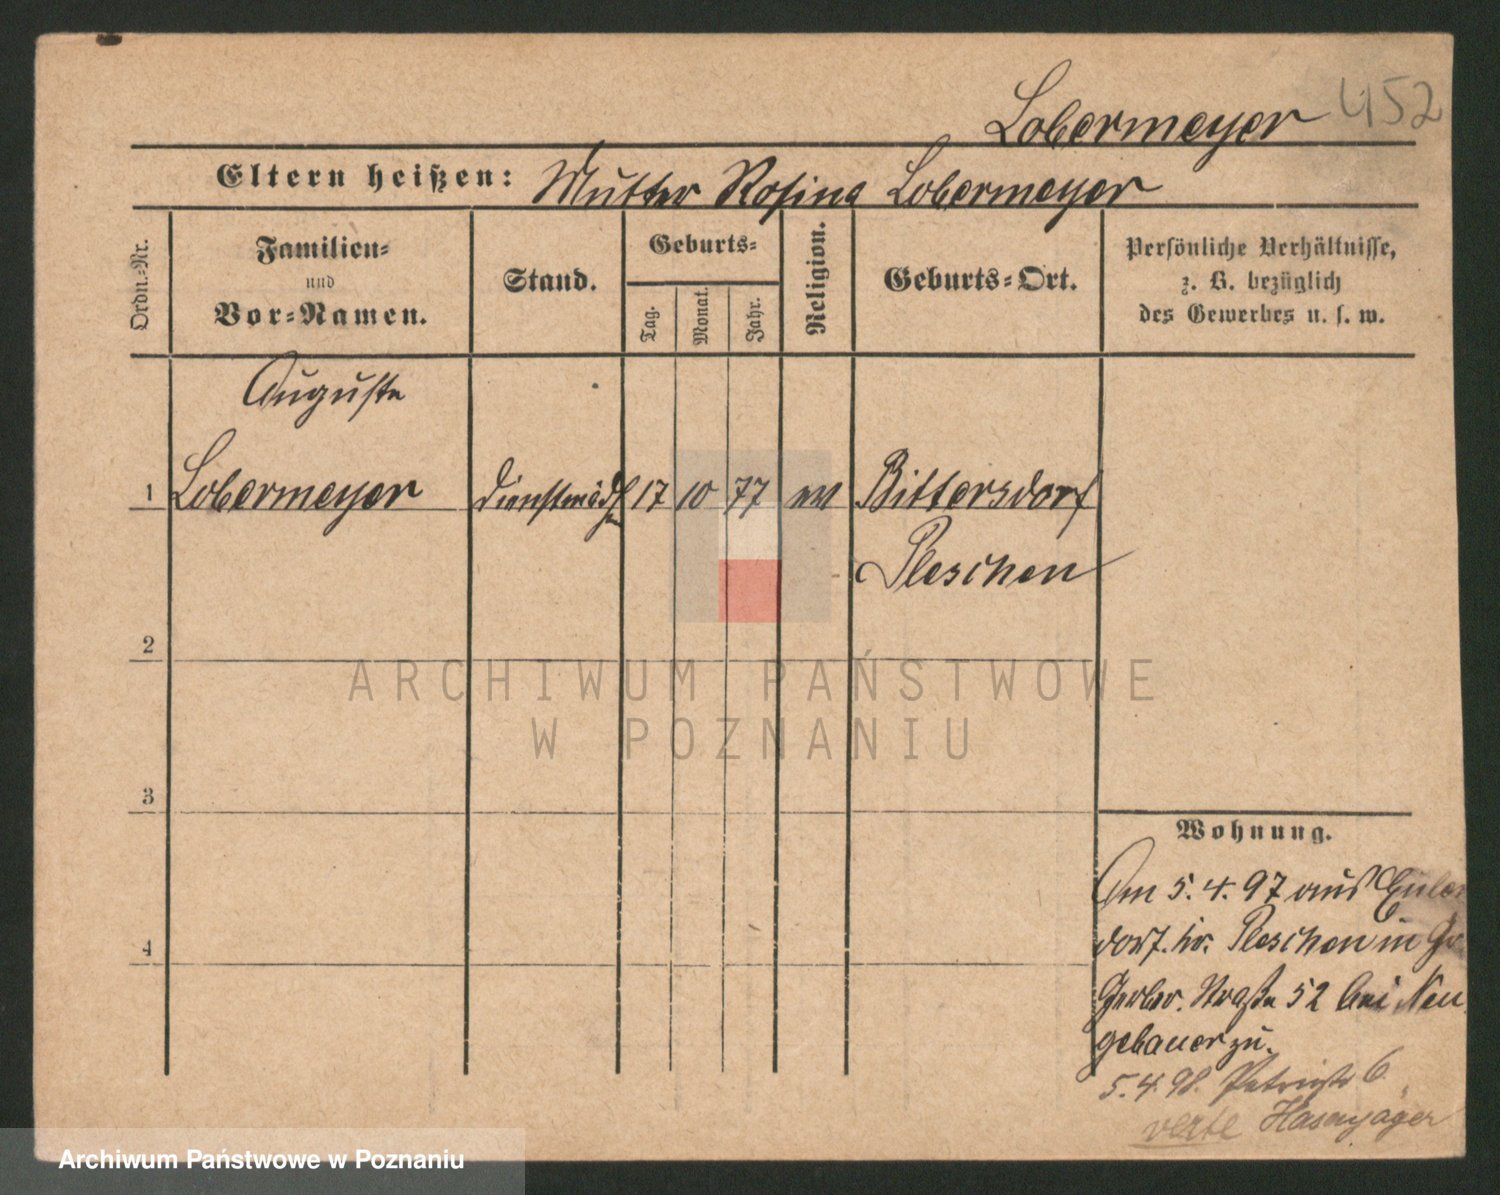 Lobermeyer 452
Eltern heißen: Mutter Rosina Lobermeyer
Ordn.-Nr.
Familien-
und
Vor-Namen.
Stand.
Geburts-
Tag.
Monat.
Jahr.
Religion.
Geburts-Ort.
Persönliche Verhältnisse,
z. B. bezüglich
des Gewerbes u. s. w.
Auguste
1 Lobermeyer Dienstmädch 17 10 77 Bittersdorf
Pleschen
2
3
4
Wohnung.
Am 5.4.97 aus
dorf. Kr. Pleschen in
Gerber. Straße 52 bei Neu
gebauer zu.
5.4.98. 6
verte Hasenjäger
ARCHIWUM PAŃSTWOWE
W POZNANIU
Archiwum Państwowe w Poznaniu